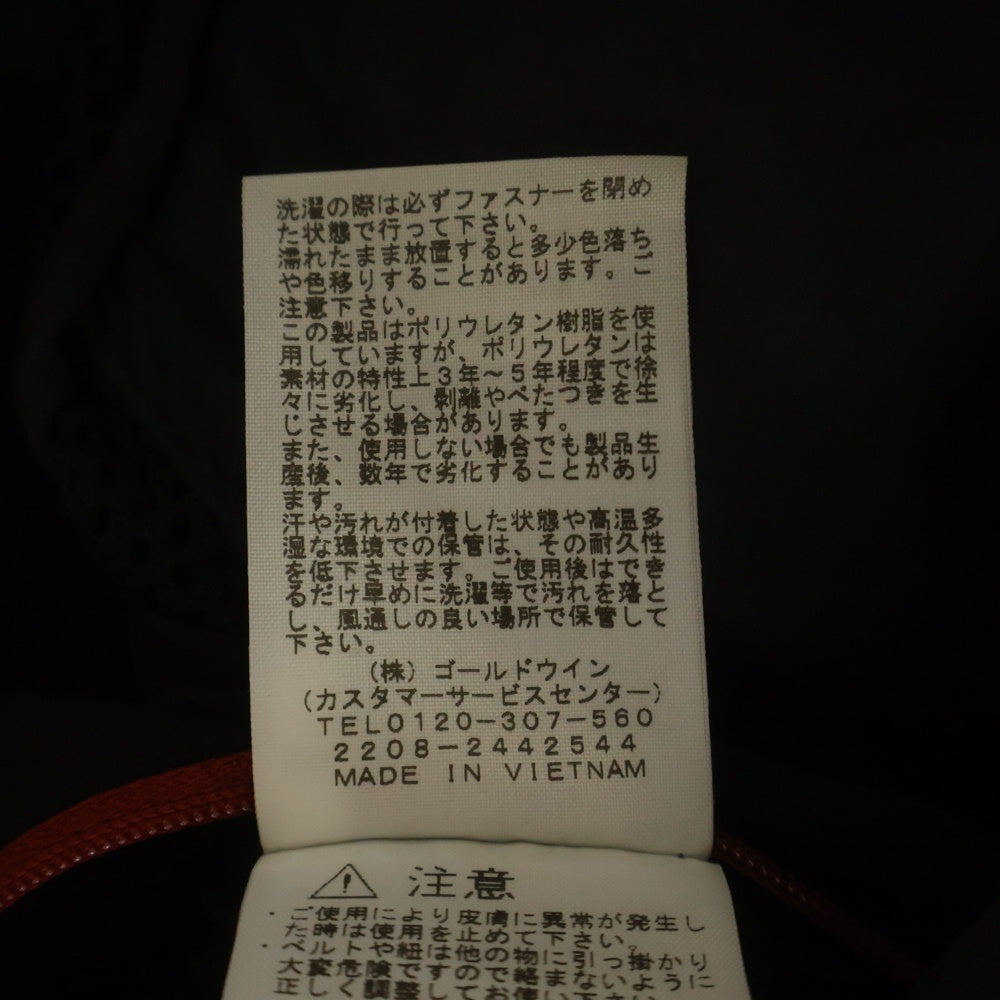 洗濯の際は必ずファスナーを閉め
た状態で行って下さい。
濡れたまま放置すると多少色落ち
や色移りすることがあります。ご
注意下さい。
この製品はポリウレタン樹脂を使
用していますが、ポリウレタンは
素材の特性上3年～5年程度で徐
々に劣化し、剥離やべたつきを生
じさせる場合があります。
また、使用しない場合でも製品生
産後、数年で劣化することがあり
ます。
汗や汚れが付着した状態や高温多
湿な環境での保管は、その耐久性
を低下させます。ご使用後はでき
るだけ早めに洗濯等で汚れを落と
し、風通しの良い場所で保管して
下さい。
（株）ゴールドウイン
（カスタマーサービスセンター）
TEL0120-307-560
2208-2442544
MADE IN VIETNAM
⚠ 注意
・ご使用により皮膚に異常が発生し
た時は使用を止めて下さい。
・ベルトや紐は他の物に引っ掛かり
大変危険ですので絡まないように
正しく調整してお使い下さい。